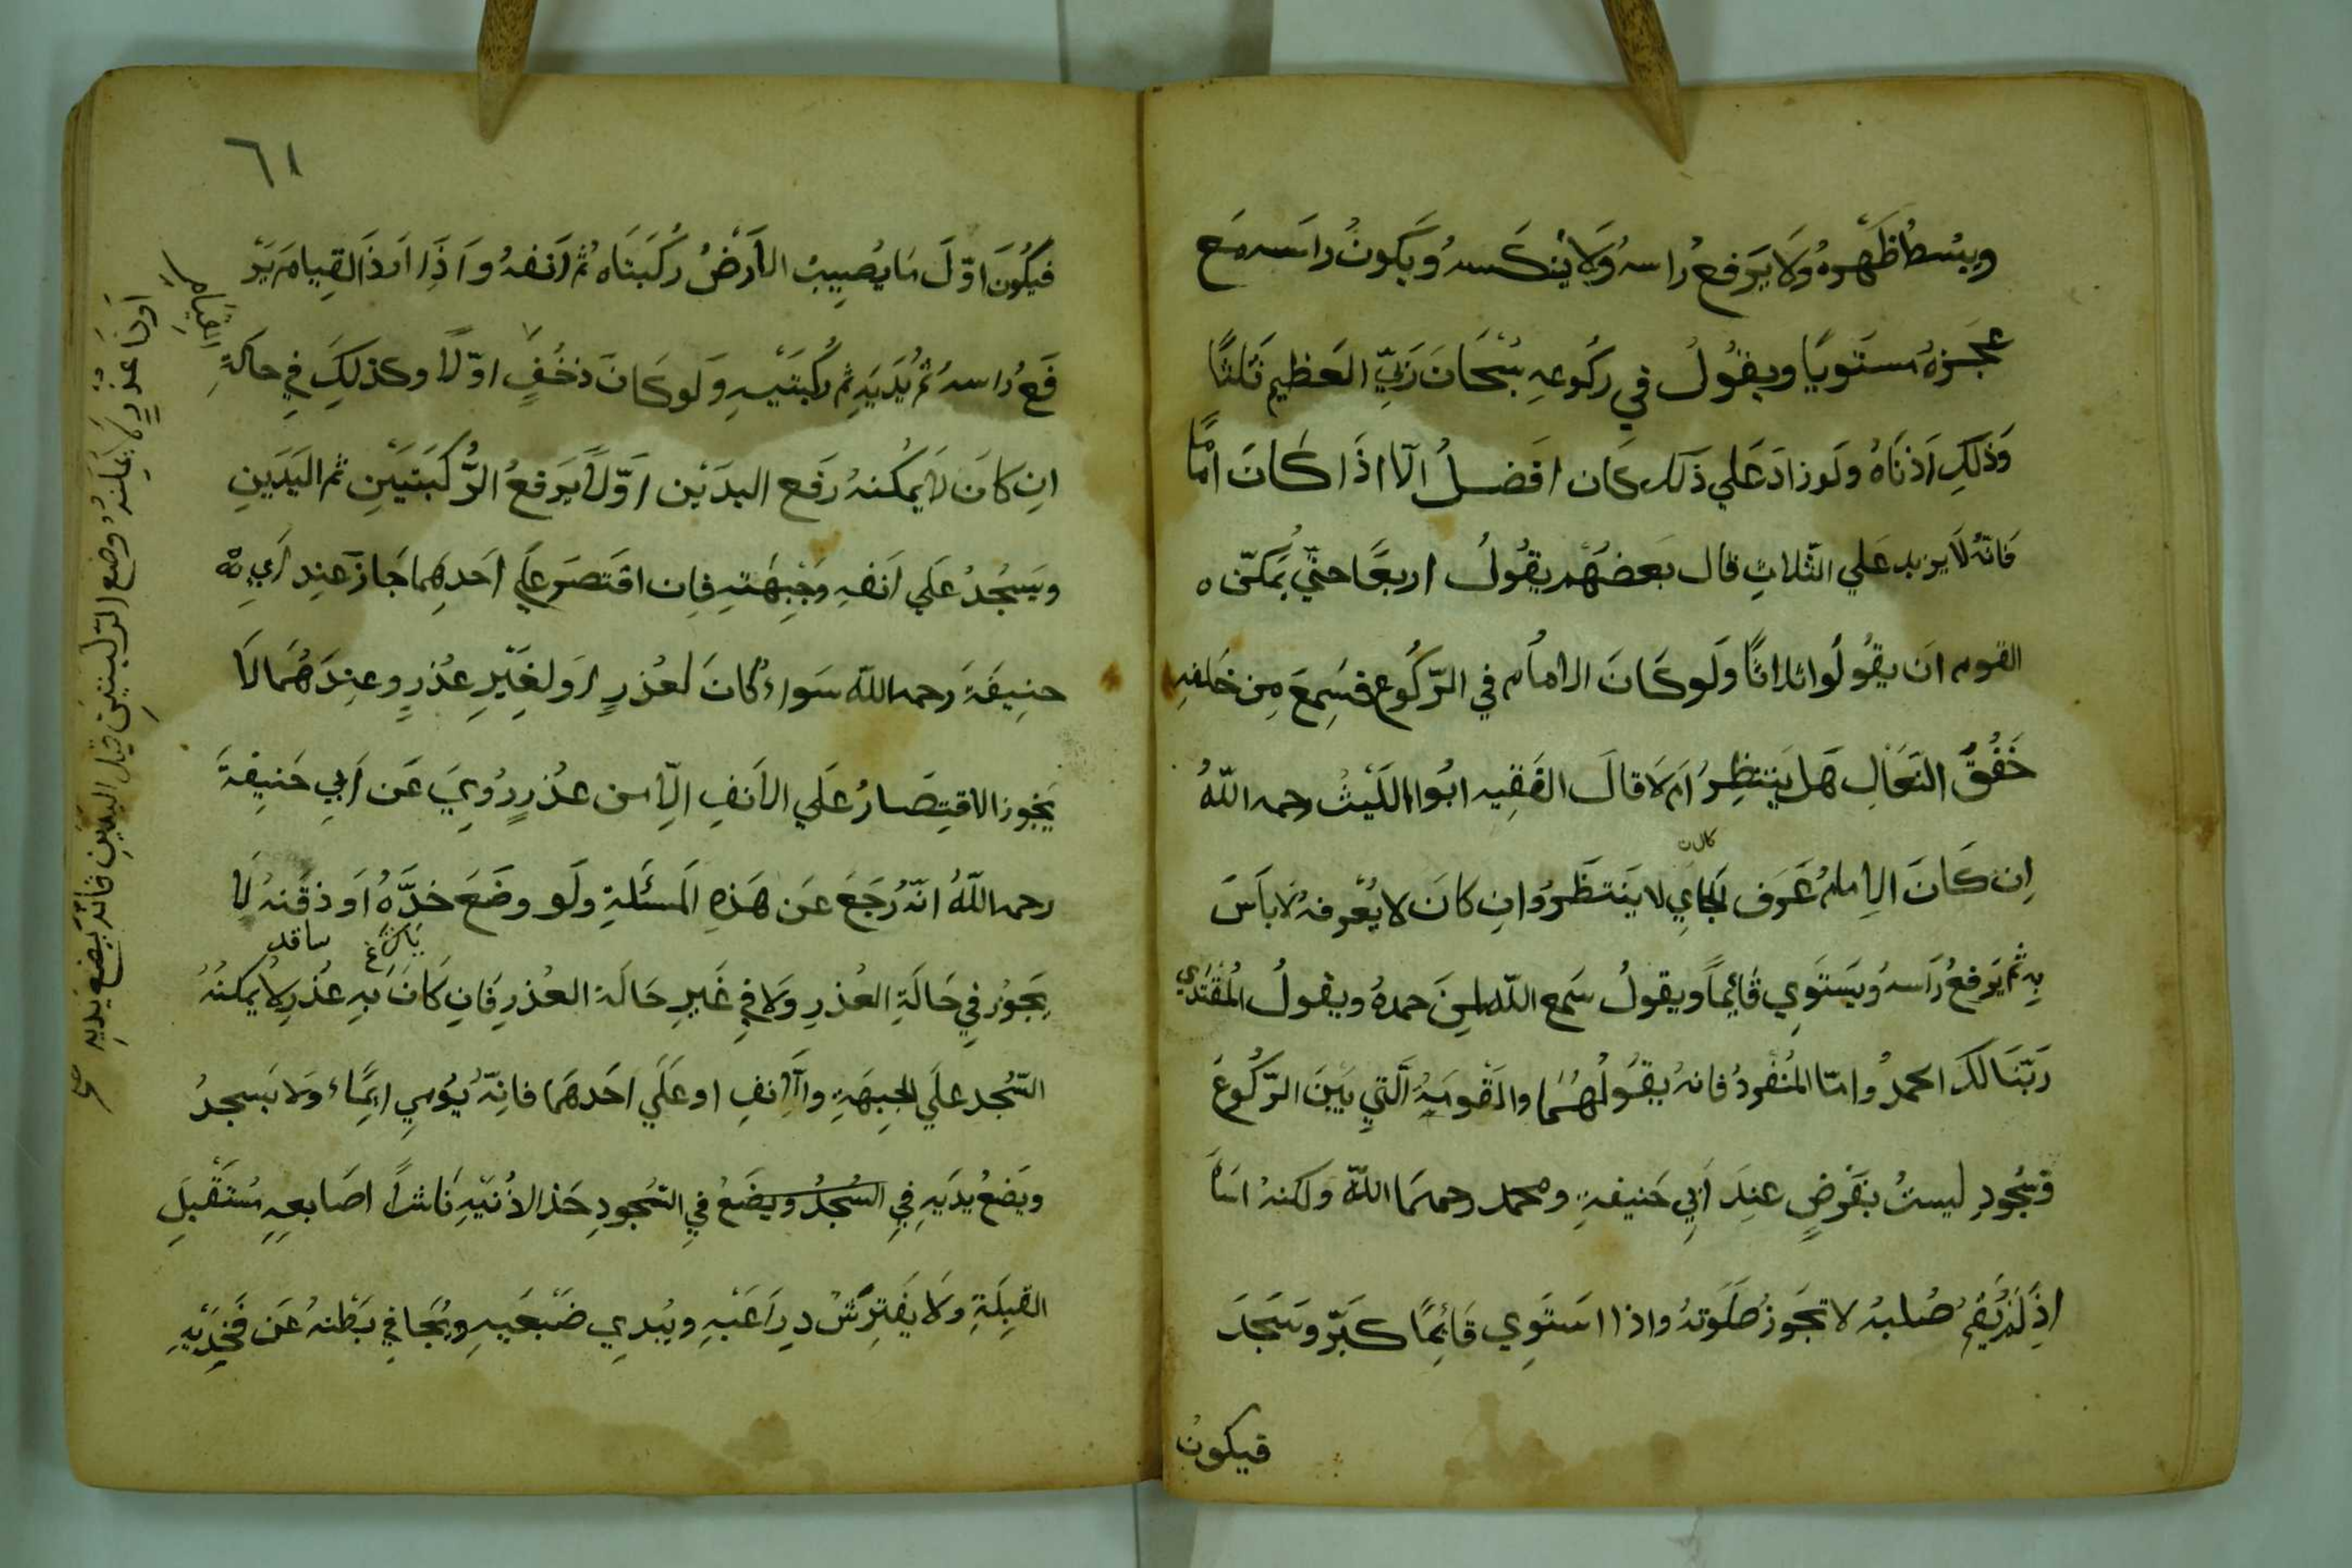 ويبسُط ظَهْره وَلَا يَرفع رُاسهُ وَلَا يُنكَسهُ وَيَكونُ راسَه مَع
عجَزهُ مستَويًا ويقُولُ في ركُوعهِ سُبْحَانَ رَبّيَ العَظيم ثَلثًا
وَذلَكِ اَدْنَاهُ ولَو زادَ عَلي ذَلك كَان افَضلُ الّا اذَا كَانَ امامًا
فَانّهُ لَا يزيد عَلي الثّلاثِ قال بَعضهُم يقُولُ اربعًا حتّي يُمكّن ه
القوم ان يقُولُوا ثلاثًا وَلَو كَانَ الامامُ في الرّكُوع فسَمِعَ مِن خَلفهِ
خَفْقَ النّعَالِ هَل يَنتظِرُ اَم لَا قالَ الفَقِيه ابُوا اللَيْثْ رحمه اللّهُ
كان
اِن كَانَ الاِمامُ عَرَف الجَايِ لا يَنتَظَرُ وانِ كانَ لا يُعْرفهُ لَا باَسَ
بِهِ ثم يَرفعُ رَاسهُ وَيَستَوِي قَائِيماً ويقولُ سَمع اللّه لمِنَ حمدهُ ويقولُ المُقْتَدي
رَبّنَا لَكَ الحمدُ وامّا المُنْفردُ فانهُ يقُولُهُمَا والقَومَهُ الَّتيِ بَيْنَ الرّكُوعَ
وسُجُودِ ليستُ بفَرْضٍ عندَ اَبِي حَنيفةِ ومحمد رحمهمَا اللّه ولكنهُ اسَاَ
اذِ لَم يُقم صُلبهُ لا تجَوز صَلَوتهُ واذا استَوِي قَائِمًا كَبّر وسَجَدَ
فيكونُ
٦١
فيَكُونَ اوّلَ مَا يُصِيبُ الاَرَضْ رُكَبتَاه ثُم اَنفهُ وَاذَِا ارَادَ القِيام يَرْ
فَعُ رُاسهُ ثم يُدَيَهِ ثم رُكبتَيْهِ وَلَو كَانَ ذخُفٍ اوّلًا وكذلَكِ في حالَةِ
القيامِ
انِ كانَ لَا يمكُنهُ رَفع اليدَيْن اَوّلًا يَرفعُ الرُّكبَتيَيْنِ ثم اليَدَينِ
ويَسجُدُ عَلي اَنفهِ وَجِبهَتهِ فاِن اقتَصَر عَلَي اَحَدِهِما جَازَ عَندِ اَبي
حنِيفَةَ رحمه اللّه سَواءُ كانَ لعُذرٍ اوَ لغَِيْرِ عُذرٍ وعنِدَهُمَا لَا
يَجُوز الاقتِصَارُ عَلَي الاَنفِ اِلّا من عذُرٍ رُوِيَ عَن اَبي حَنيِفَةَ
رحمه اللّهُ انّهُ رَجَعَ عَن هَذهِ المَسئَلةِ ولَو وضَعَ خدَّهُ اَو ذقَنهُ لَا
يَجَوُز فيِ حَالَةِ العُذرِ وَلَا فيِ غَيرِ حَالَة العُذرِ فَانِ كَانَ بهِ عذُرٍ لَا يمكنُهُ
السّجُد علَي الجِبهَةِ والآنفِ او عَلَي اَحَدهَما فانِهّ يُوُميِ ايِمَاء وَلا يَسجدُ
ويَضعُ يدَيهِ في السُجُدُ ويضَعُ فيِ السّجُودِ حَذ الاذُنَيهِ نَاشراً اصَابعهِ مُستَقْبلِ
القبِلَةِ ولَا يَفتِرَشْ ذِرَاعَيْهِ ويُبدِي ضَبْعَيهِ ويُجَافيِ بَطْنهُ عَن فَخِذَيْهِ
اَو كانَ عذُرٍ لا يمكِنُهُ وضعِ الرّكبتيَن قبل اليدَينِ فانهُ يَضعُ يَديهِ